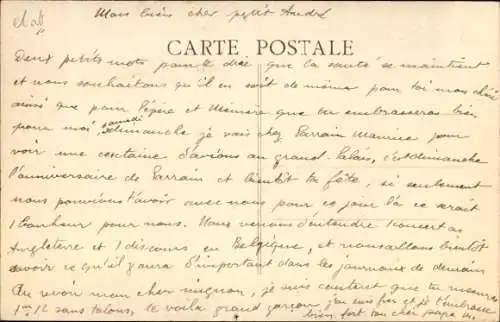 Mon bien cher petit André
CARTE POSTALE
Deux petits mots pour te dire que la santé se maintient
et nous souhaitons qu'il en soit de même pour toi mon chéri
ainsi que pour Pépère et Mémère que tu embrasseras bien
pour moi, samedi dimanche je vais chez Parrain Maurice pour
voir une centaine d'avions au grand Palais, c'est dimanche
l'anniversaire de Parrain et bientôt ta fête, si seulement
nous pouvions t'avoir avec nous pour ce jour là ce serait
1 bonheur pour nous. Nous venons d'entendre 1 concert en
Angleterre et 1 discours en Belgique, et nous allons bientôt
savoir ce qu'il y aura d'important dans les journaux de demain
Au revoir mon cher mignon, je suis content que tu mesures
1m12 sans talons, te voilà grand garçon j'en suis fier et je t'embrasse
bien fort ton cher papa